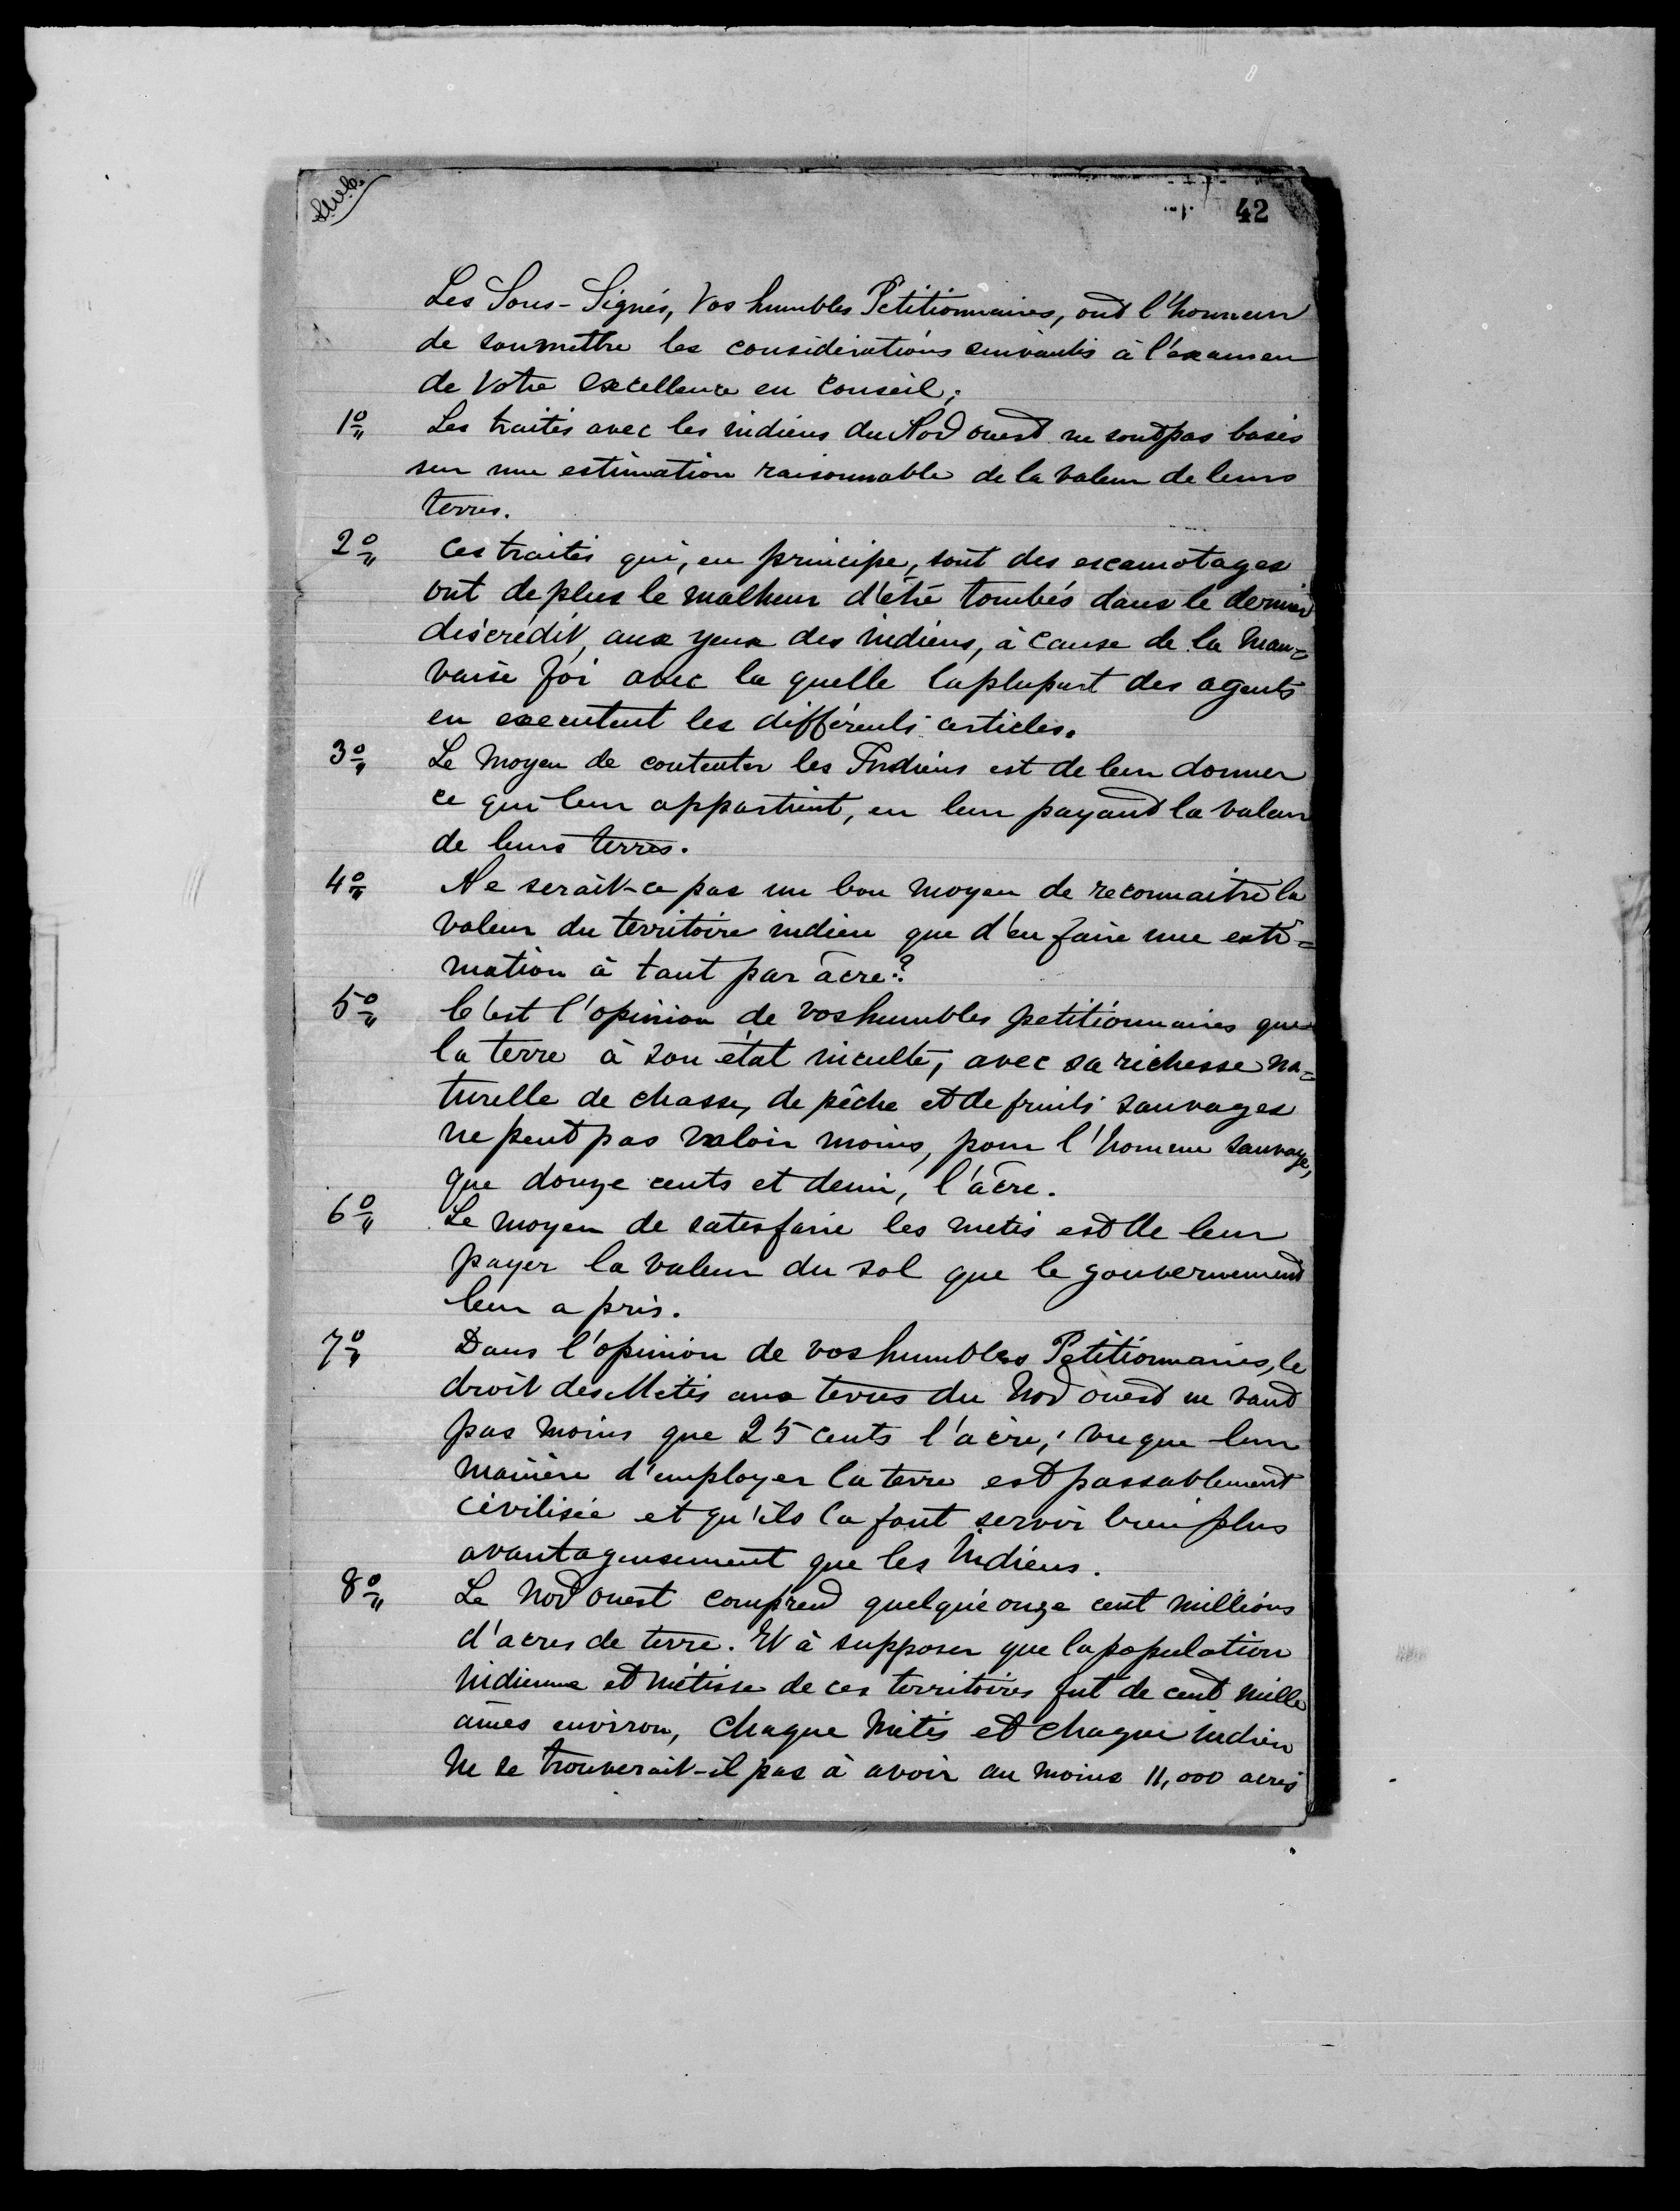 42
Les Sous-Signés, Vos humbles Petitionnaires, ont l'honneur
de soumettre les considérations suivantes à l'examen
de Votre Excellence en Conseil;
1º Les traités avec les indiens du Nord ouest ne sont pas basés
sur une estimation raisonnable de la valeur de leurs
terres.
2º Ces traités qui, en principe, sont des escamotages
ont de plus le malheur d'être tombés dans le dernier
discrédit, aux yeux des indiens, à cause de la mau=
vaise foi avec la quelle la plupart des agents
en executent les différents articles.
3º Le moyen de contenter les Indiens est de leur donner
ce qui leur appartient, en leur payant la valeur
de leurs terres.
4º Ne serait-ce pas un bon moyen de reconnaitre la
valeur du territoire indien que d'en faire une esti=
mation à tant par âcre?
5º C'est l'opinion de vos humbles petitionnaires que
la terre à son état inculte, avec sa richesse na=
turelle de chasse, de pêche et de fruits sauvages
ne peut pas valoir moins, pour l'homme sauvage,
que douze cents et demi, l'âcre.
6º Le moyen de satisfaire les metis est de leur
payer la valeur du sol que le gouvernement
leur a pris.
7º Dans l'opinion de vos humbles Petitionnaires, le
droit des Metis aux terres du Nord ouest ne vaut
pas moins que 25 cents l'acre; vu que leur
manière d'employer la terre est passablement
civilisée et qu'ils la font servir bien plus
avantageusement que les Indiens.
8º Le Nord ouest comprend quelque onze cent millions
d'acres de terre. Et à supposer que la population
indienne et métisse de ces territoires fut de cent mille
âmes environ, chaque Métis et chaque indien
ne se trouverait-il pas à avoir au moins 11,000 acres